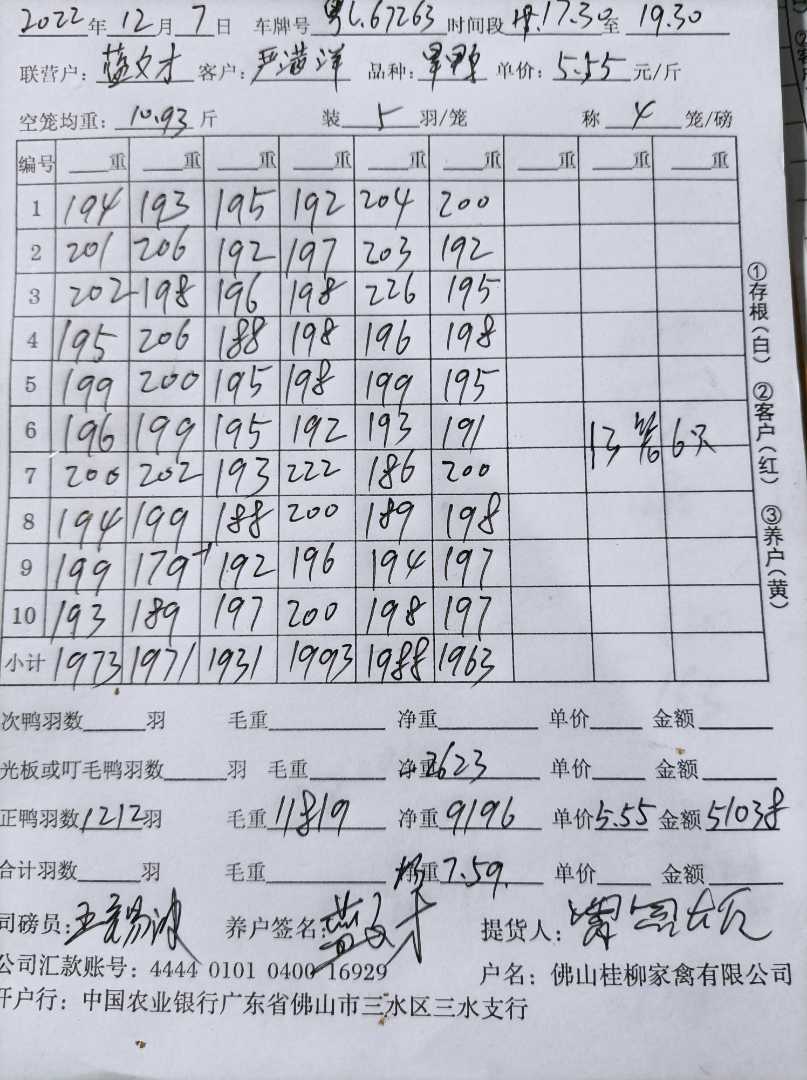 2022年 12月 7日 车牌号 粤L.67263 时间段 17.30至 19.30
联营户: 蓝文才 客户: 严满洋 品种: 单价: 5.55 元/斤
空笼均重: 10.93 斤 装 5 羽/笼 称 4 笼/磅
编号 重 重 重 重 重 重 重 重 重
1 194 193 195 192 204 200
2 201 206 192 197 203 192
3 202 198 196 198 226 195
4 195 206 188 198 196 198
5 199 200 195 198 199 195
6 196 199 195 192 193 191 13笼6只
7 200 202 193 222 186 200
8 194 199 188 200 189 198
9 199 179 192 196 194 197
10 193 189 197 200 198 197
小计 1973 1971 1931 1993 1988 1963
①存根(白) ②客户(红) ③养户(黄)
次鸭羽数 羽 毛重 净重 单价 金额
光板或叮毛鸭羽数 羽 毛重 净重 2623 单价 金额
正鸭羽数 1212 羽 毛重 11819 净重 9196 单价 5.55 金额 51038
合计羽数 羽 毛重 净重 7.59 单价 金额
司磅员: 养户签名: 蓝文才 提货人:
公司汇款账号: 4444 0101 0400 16929 户名: 佛山桂柳家禽有限公司
开户行: 中国农业银行广东省佛山市三水区三水支行